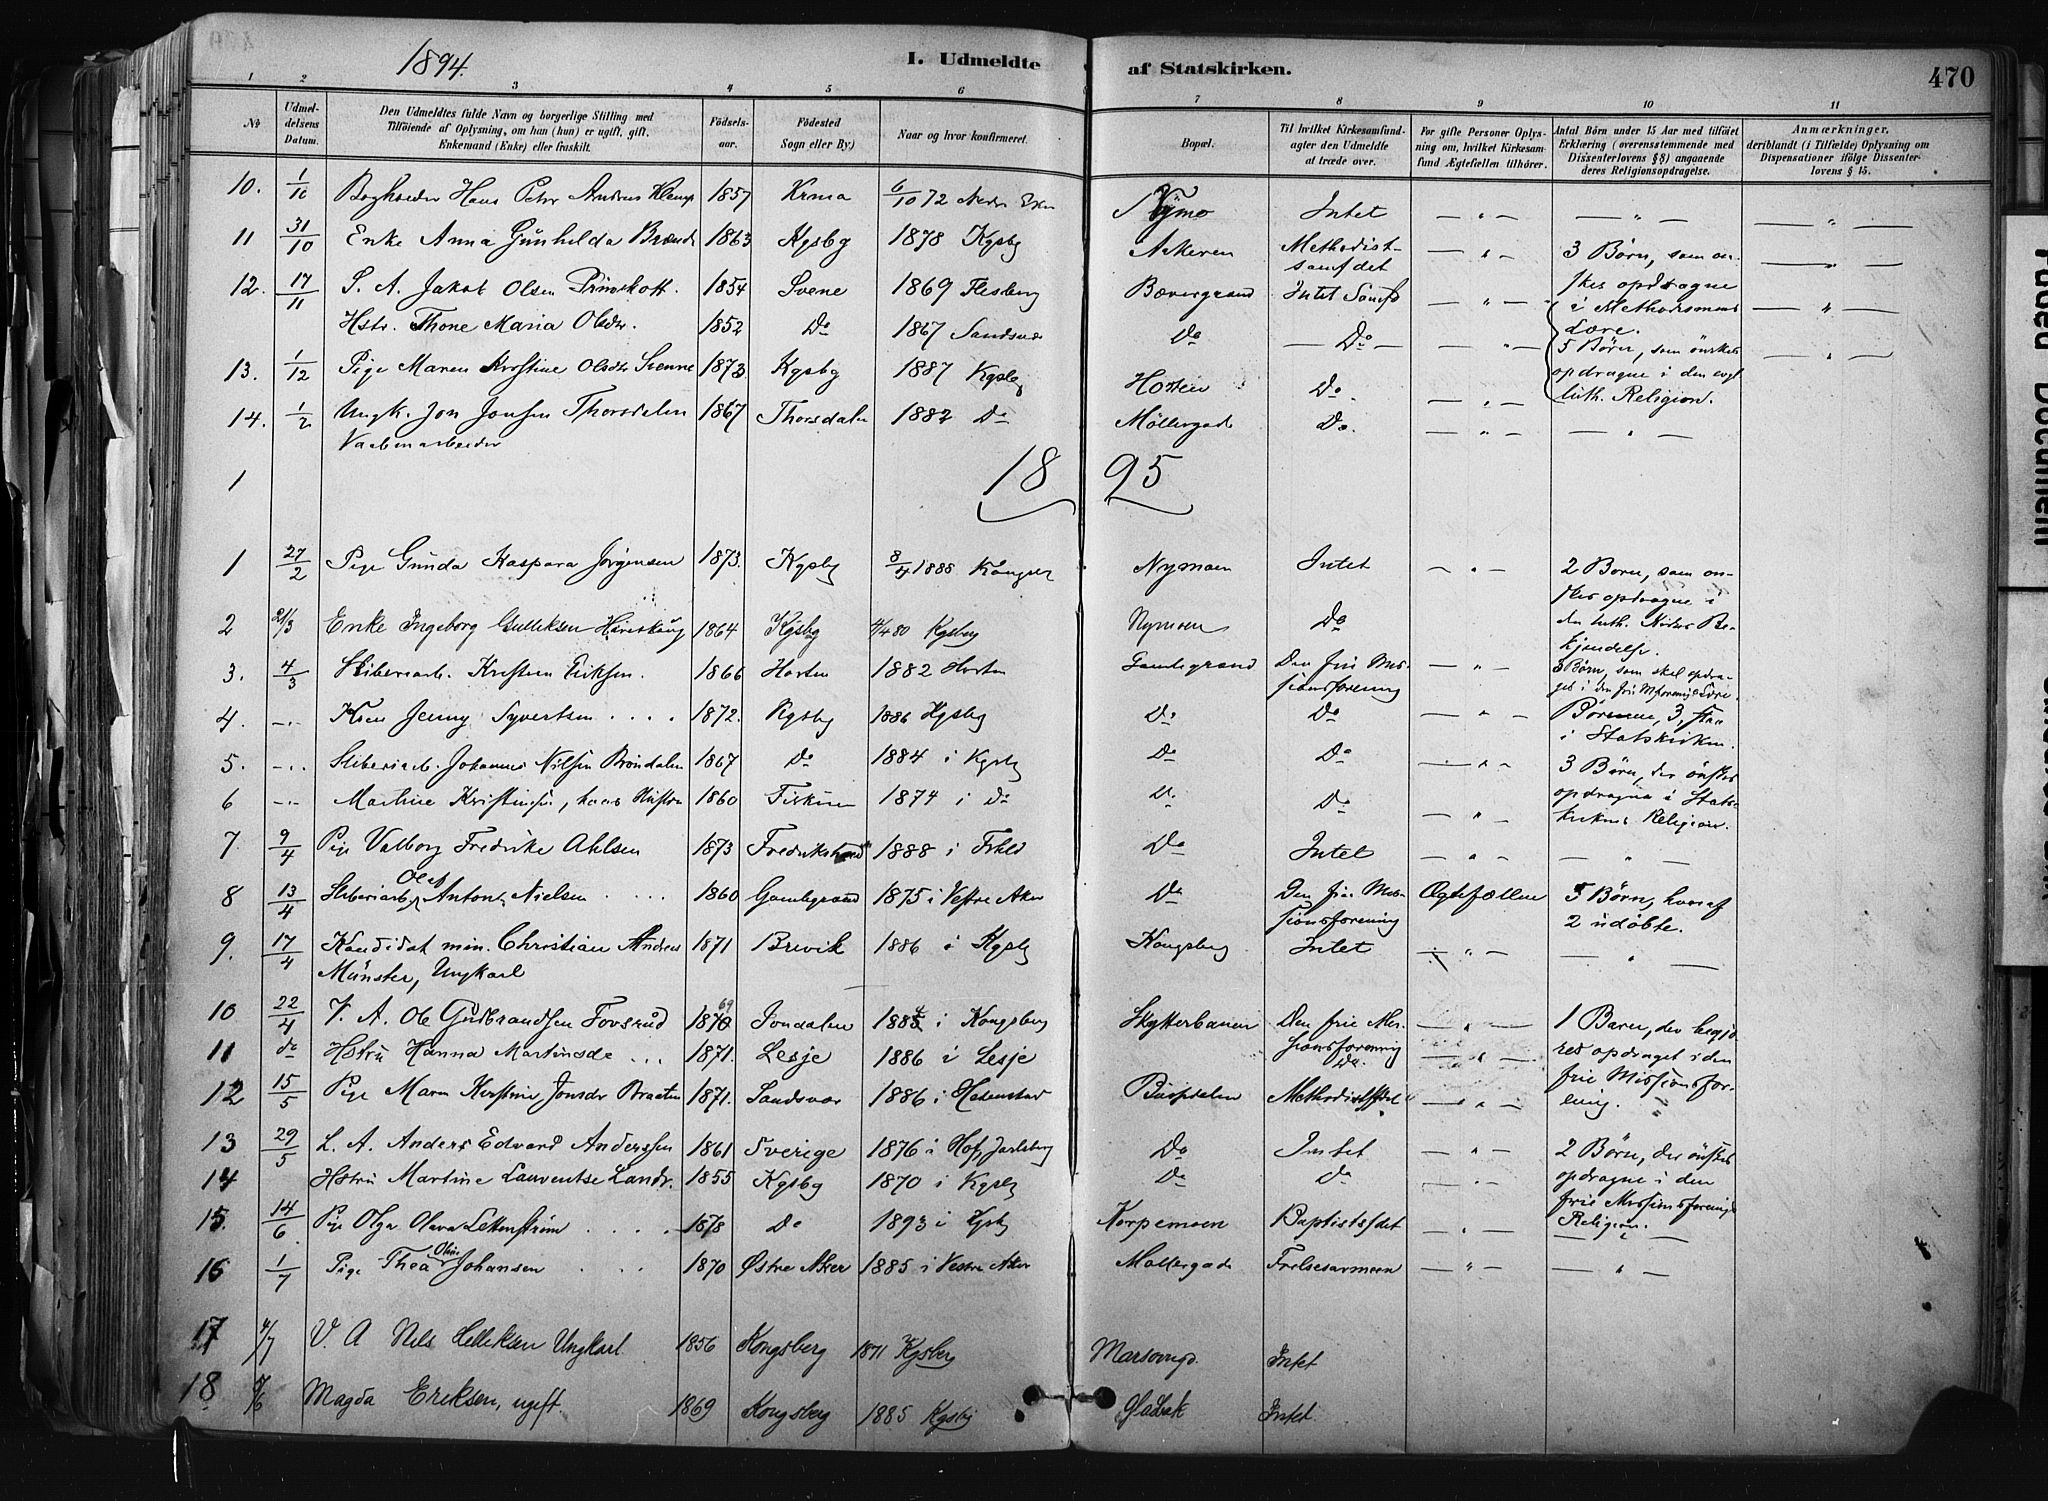 1894.
I. Udmeldte af Statskirken.
470
1 2 3 4 5 6 7 8 9 10 11
Nr.
Udmeldelsens Datum.
Den Udmeldtes fulde Navn og borgerlige Stilling med Tilföiende af Oplysning, om han (hun) er ugift, gift, Enkemand (Enke) eller fraskilt.
Födselsaar.
Födested Sogn eller By)
Naar og hvor konfirmeret.
Bopæl.
Til hvilket Kirkesamfundagter den Udmeldte at træde over.
For gifte Personer Oplysning om, hvilket Kirkesamfund Ægtefællen tilhörer.
Antal Børn under 15 Aar med tilföiet Erklæring (overensstemmende med Dissenterlovens § 8) angaaende deres Religionsopdragelse.
Anmærkninger, deriblandt (i Tilfælde) Oplysning om Dispensationer ifölge Dissenterlovens § 15.
10. 1/10 Bogholder Hans Peter Andreas 1857 Krnia 6/10 72 Intet — " — — " — — " —
11 31/10 Enke Anna Gunhilda 1863 Kgsbg 1878 Kgsbg Methodistsamfdet — " — 3 Børn, som onskes opdragne i Methodismens Lære. — " —
12. 17/11 S. A. Jakob Olsen 1854 Svene 1869 Flesberg Bævergrand Intet Samfd — " — — " —
Hstr. Thone Maria Olsdr. 1852 Do 1867 Sandsvær Do — Do — — " — 5 Børn, som ønskes opdragne i den evgl luth. Religion. — " —
13. 1/12 Pige Maren Kirstine Olsdr Svenne 1873 Kgsbg 1887 Kgsbg Do. — " —
14. 1/2 Ungk. Jon Jonsen Thorsdalen 1867 Thorsdalen 1882 Do Möllergade Do. — " — — " —
Vaabenarbeider
1
1895
1 27/2 Pige Gunda Kaspara Jörgensen 1873. Kgsbg 8/4 1888 Nymoen Intet — " — 2 Børn, som onskes opdragne i den luth. Kirkes Bekjendelse.
2 21/3 Enke Ingeborg Gulliksen 1864 Kgsbg 4/4 80 Kgsberg Nymoen Do
3. 4/3 Sliberiarb. Kristian Eriksen. 1866 Horten 1882 Horten Gamlegrand Den frie Missionsforening — " — 3 Børn, som skal opdrages i den frie
4. -..- Jenny Syvertsen .... 1872. Kgsbg 1886 Kgsbg Do Do — " — Børnene, 3, staa i Statskirken.
5. -..- Sliberiarb. Johannes Nilsen Bröndalen 1867 Do 1884 i Kgsbg Do Do — " — 3 Børn, der ønskes opdragne i Statskirkens Religion.
6 -..- Martine Kristiansen, hans Hustru 1860 Fiskum 1874 i Do Do Do — " —
7. 9/4 Pige Valborg Fredrikke Ahlsen 1873 Fredrikstad 1888 i Frkld Do Intet — " — — " —
8 13/4 Sliberiarb. Olaf Anton Nielsen .... 1860 Gamlegrand 1875 i Vestre Aker Do Den frie Missionsforening Ægtefællen 5 Børn, hvoraf 2 udøbte.
9. 17/4 Kandidat min. Christian Andreas Münster, Ungkarl 1871 Brevik 1886 i Kgsbg Kongsberg Intet — " — — " —
10 22/4 V. A. Ole Gudbrandsen Fovsrud 1870 69 Jondalen 1884 i Kongsberg Skytterbanen Den frie Missionsforening — " — 1 Barn, der opdraget i den frie Missionsforening.
11 do Hstru Hanna Martinsdr ... 1871. Lesje 1886 i Lesje Do. — " —
12 15/5 Pige Maren Kirstine Jonsdr Braaten 1871. Sandsvær 1886 i Hedenstad Methodistsfdet — " — "
13 29/5 L. A. Anders Edvard Anderssen 1861 Sverige 1876 i Hof, Jarlsberg Do Intet — " — 2 Børn, der ønskes opdragne i den frie Missionsforenings Religion.
14 Hstru Martine Lauventse Landr. 1855 Kgsbg 1870 i Kgsbg Do Do — " —
15. 14/6 Pige Olga Olava .... 1878 Do 1893 i Kgsbg Korpemoen Baptistsfdet — " — — " —
16 1/7 Pige Thea Oline Johansen ... 1870 Østre Aker 1885 i Vestre Aker Møllergade Frelsesarmeen — " — — " —
17 4/7 V. A Nels Helleksen Ungkarl 1856 Kongsberg 1871 Kgsberg Intet
18 7/6 Magda Eriksen, ugift. 1869 Kongsberg 1885 Kgsbg Intet.